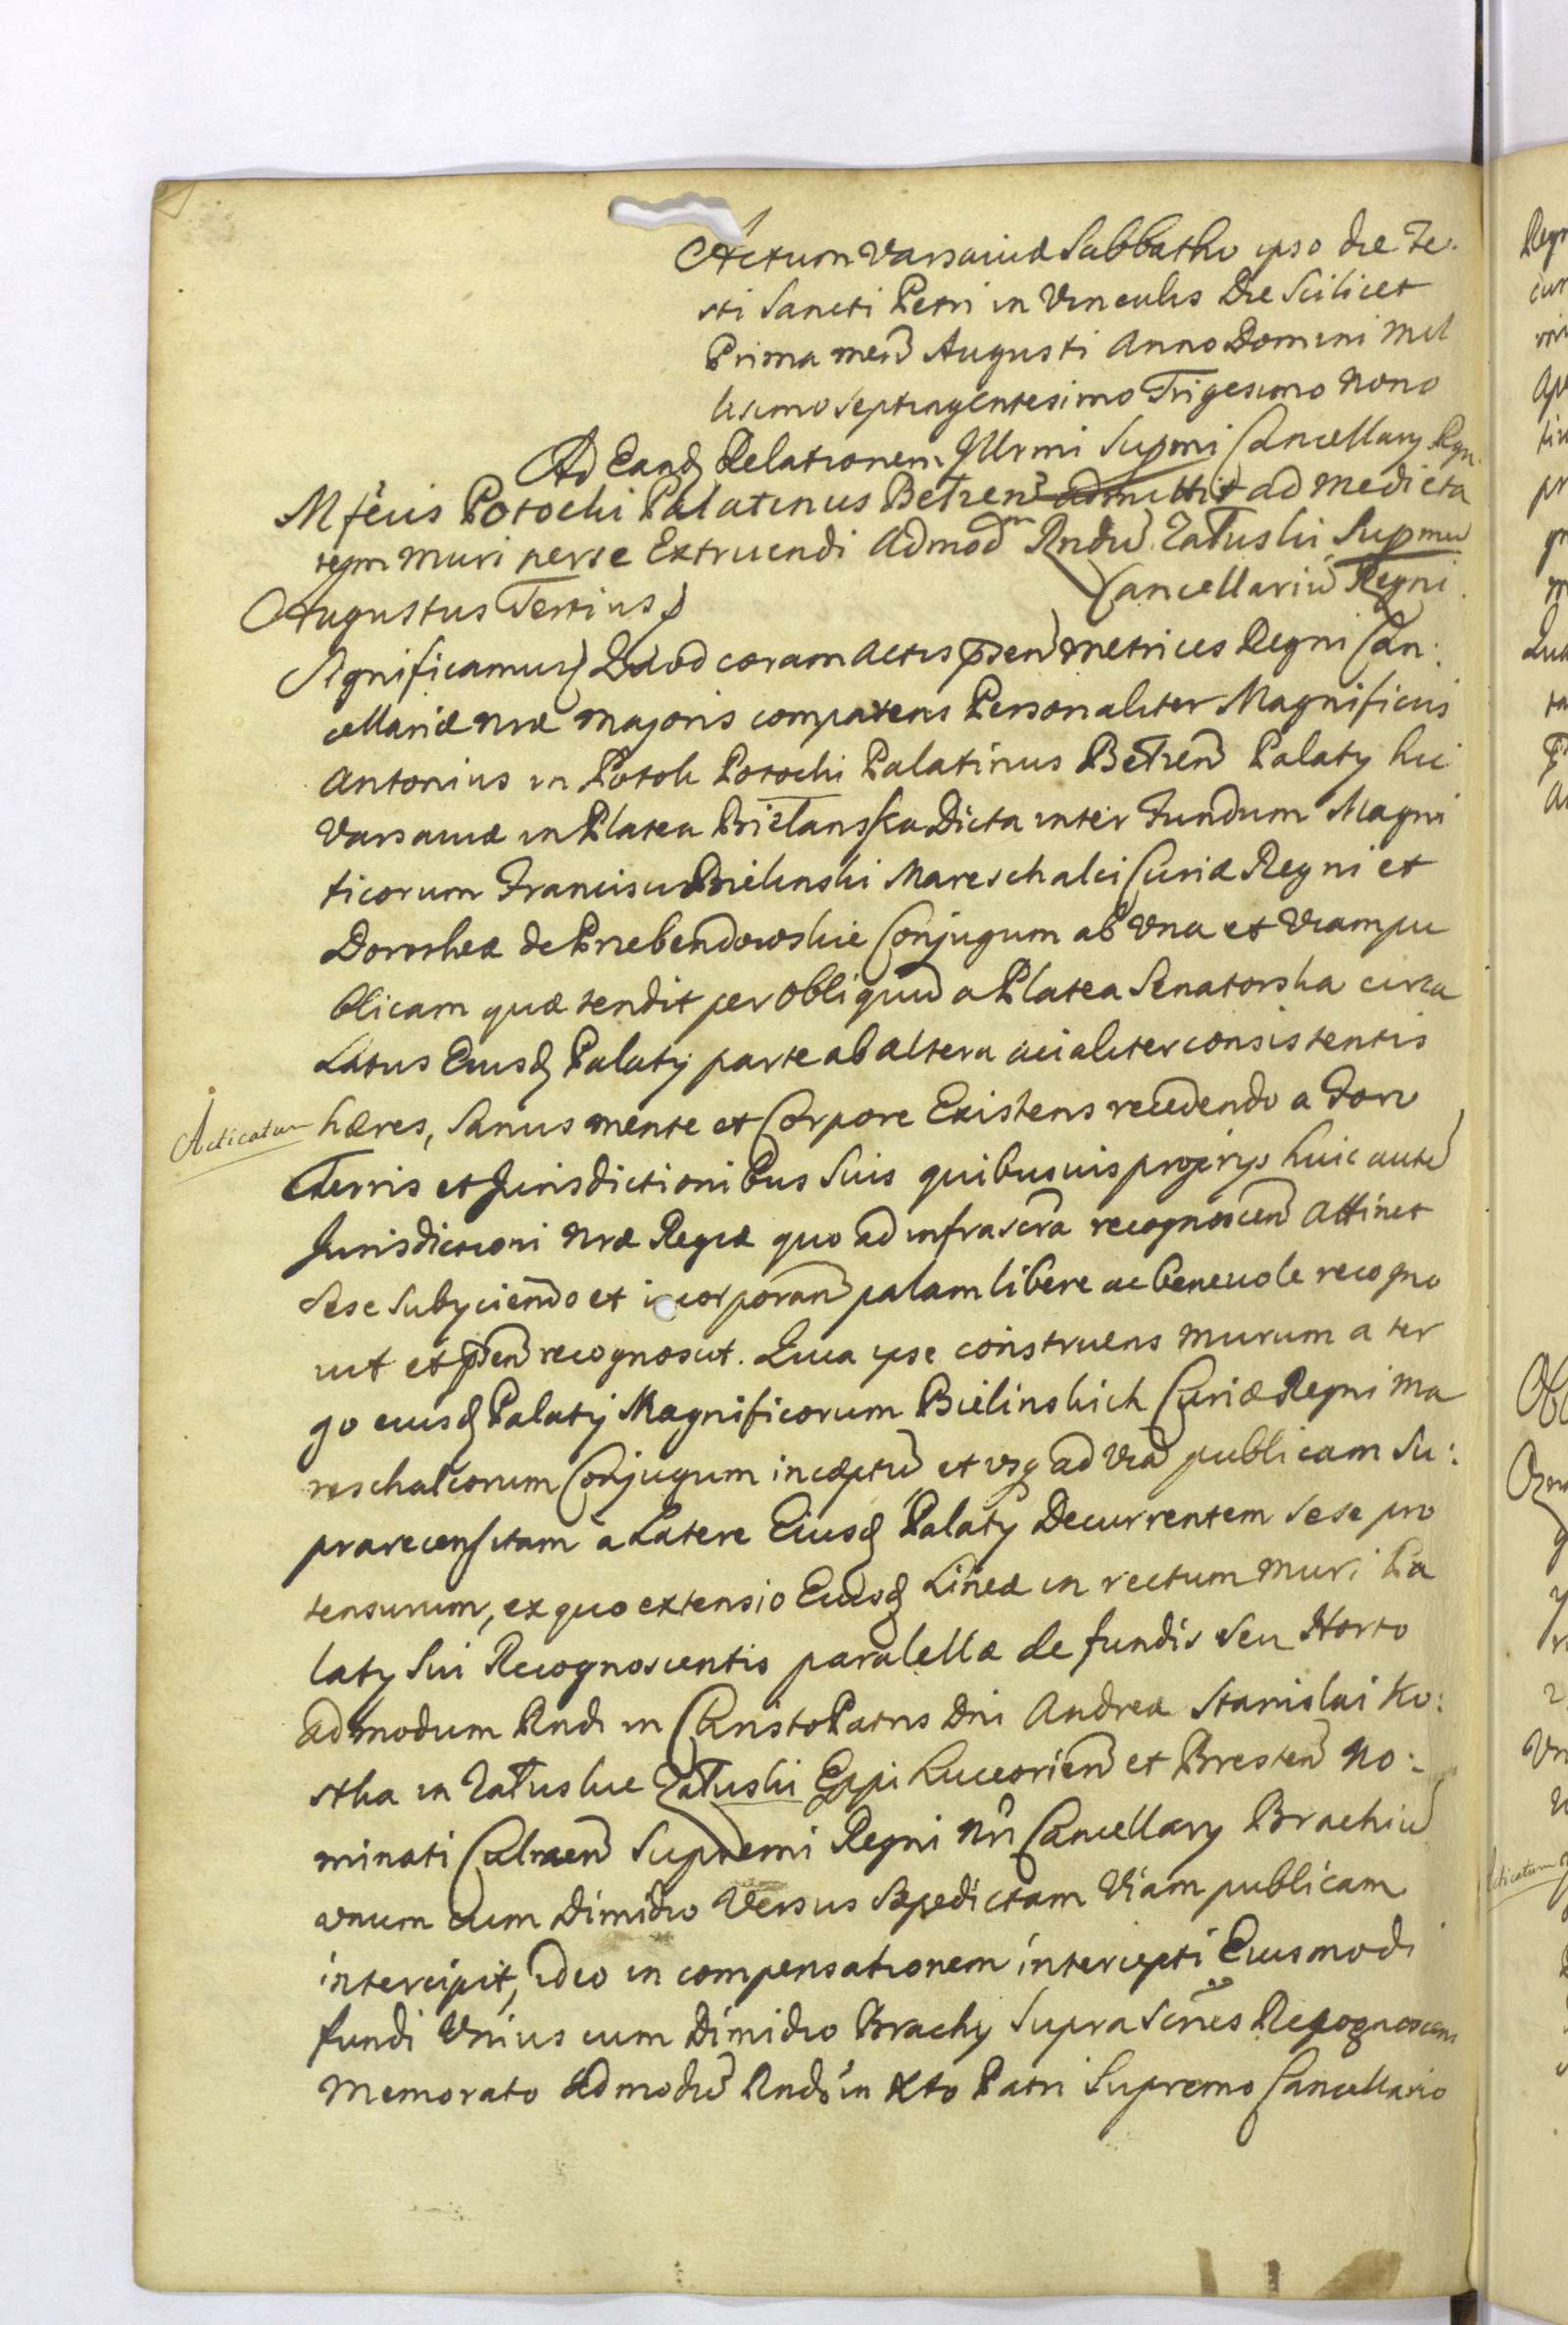 Actum Varsaviæ Sabbatho ipso die Fe-
sti Sancti Petri in Vinculis Die Scilicet
Prima mens̄ Augusti Anno Domini mil
lesimo Septingentesimo Trigesimo Nono
Ad Eandꝫ Relationem Illrmi Supmi Cancellary Regni
Mfcus Potocki Palatinus Belzens̄ admittit ad medieta
tem muri per se Extruendi Admodm Rndū Załuski Supmū
Cancellariū Regni
Augustus Tertius
Significamus Quod coram Actis p̄sen̄ Metrices Regni Can:
cellariæ nræ Majoris comparens Personaliter Magnificus
Antonius in Potok Potocki Palatinus Bełzen̄ Palaty hic
Varsaviæ in Platea Bielanska Dicta inter Fundum Magni
ficorum Francisci Bielinski Mareschalci Curiæ Regni et
Dorotheæ de Przebendowskie Conjugum ab Una et Viam pu
blicam quæ tendit per obliquū a Platea Senatorska circa
Latus Eiusdꝫ Palaty parte ab altera acialiter consistentis
Acticatum
hæres, Sanus mente et Corpore Existens recedendo a Foro
Terris et Jurisdictionibus Suis quibusvis proprys huic autē
Jurisdictioni nræ Regiæ quo ad infrascrā recognoscen̄ attinet
Sese Subyciendo et incorporan̄ palam libere ac benevole recogno
vit et p̄sen̄ recognoscit. Quia ipse construens murum a ter
go eiusdꝫ Palaty Magnificorum Bielinskich Curiæ Regni Ma
reschalcorum Conjugum incæptū et usqꝫ ad viā publicam Su:
prarecensitam à Latere Eiusdꝫ Palaty Decurrentem sese pro
tensurum, ex quo extensio Eiusdꝫ Lineæ in rectum Muri Pa
laty Sui Recognoscentis paralellæ de fundis seu Horto
admodum Rndi in Christo Patris Dni Andreæ Stanislai Ko:
stka in Załuskie Załuski Eppi Luceorien̄ et Bresten̄ No:
minati Culmen̄ Supremi Regni Nri Cancellary Brachiū
unum cum Dimidio Versus Sæpedictam Viam publicam
intercipit, ideo in compensationem intercepti Eiusmodi
fundi Unius cum Dimidio Brachy Supra Scrēs Recognoscens
Memorato admodū Rndō in Xto Patri Supremo Cancellario